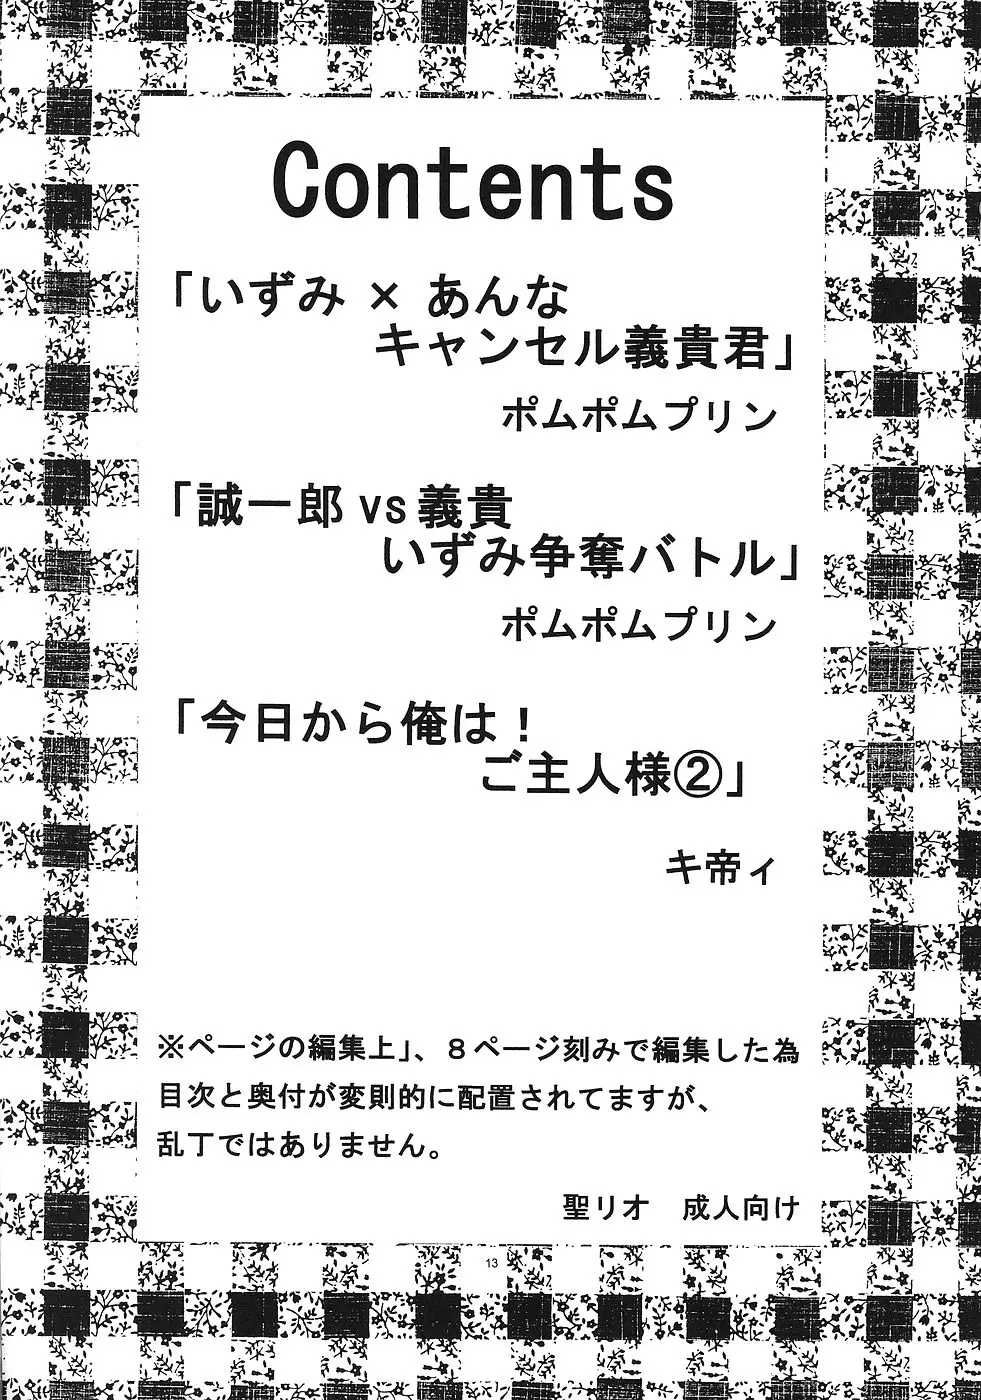 Contents
「いずみ × あんな
キャンセル義貴君」
ポムポムプリン
「誠一郎 vs 義貴
いずみ争奪バトル」
ポムポムプリン
「今日から俺は！
ご主人様②」
キ帝ィ
※ページの編集上」、８ページ刻みで編集した為
目次と奥付が変則的に配置されてますが、
乱丁ではありません。
聖リオ　成人向け
13